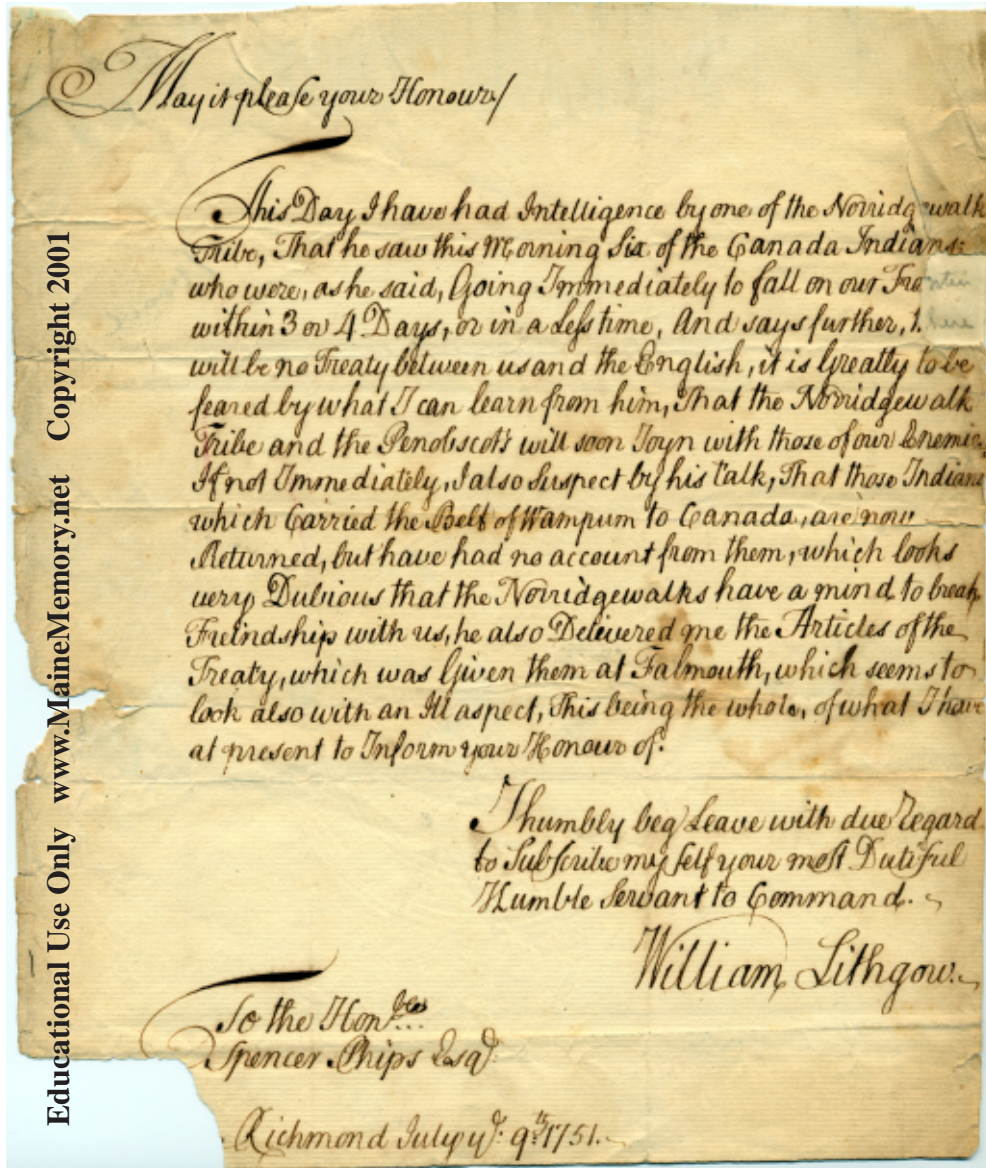 May it please your Honour/
This Day I have had Intelligence by one of the Norridgewalk
Tribe, That he saw this Morning Six of the Canada Indians
who were, as he said, Going Immediately to fall on our Frontiers
within 3 or 4 Days, or in a Less time, And says further, there
will be no Treaty between us and the English, it is Greatly to be
feared by what I can learn from him, That the Norridgewalk
Tribe and the Penobscots will soon Joyn with those of our Enemies
If not Immediately, I also Suspect by his talk, That those Indians
which Carried the Belt of Wampum to Canada, are now
Returned, but have had no account from them, which looks
very Dubious that the Norridgewalks have a mind to break
Freindship with us, he also Delivered me the Articles of the
Treaty, which was Given them at Falmouth, which seems to
look also with an Ill aspect, This being the whole, of what I have
at present to Inform your Honour of.
I humbly beg Leave with due Regard
to Subscribe my self your most Dutiful
Humble Servant to Command.
William Lithgow.
To the Honble
Spencer Phips Esqr
Richmond July ye: 9th 1751.
Educational Use Only www.MaineMemory.net Copyright 2001